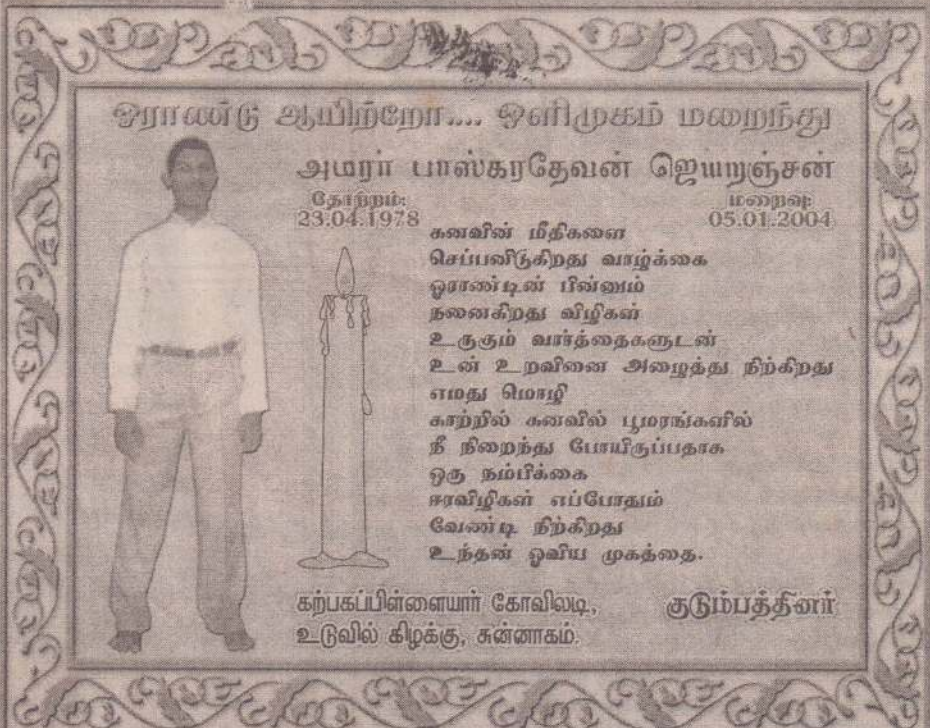 ஓராண்டு ஆயிற்றோ.... ஒளிமுகம் மறைந்து
அமரர் பாஸ்கரதேவன் ஜெயறஞ்சன்
தோற்றம்: மறைவு:
23.04.1978 05.01.2004
கனவின் மீதிகளை
செப்பனிடுகிறது வாழ்க்கை
ஓராண்டின் பின்னும்
நனைகிறது விழிகள்
உருகும் வார்த்தைகளுடன்
உன் உறவினை அழைத்து நிற்கிறது
எமது மொழி
காற்றில் கனவில் பூமரங்களில்
நீ நிறைந்து போயிருப்பதாக
ஒரு நம்பிக்கை
ஈரவிழிகள் எப்போதும்
வேண்டி நிற்கிறது
உந்தன் ஓவிய முகத்தை.
கற்பகப்பிள்ளையார் கோவிலடி, குடும்பத்தினர்
உடுவில் கிழக்கு, சுன்னாகம்.